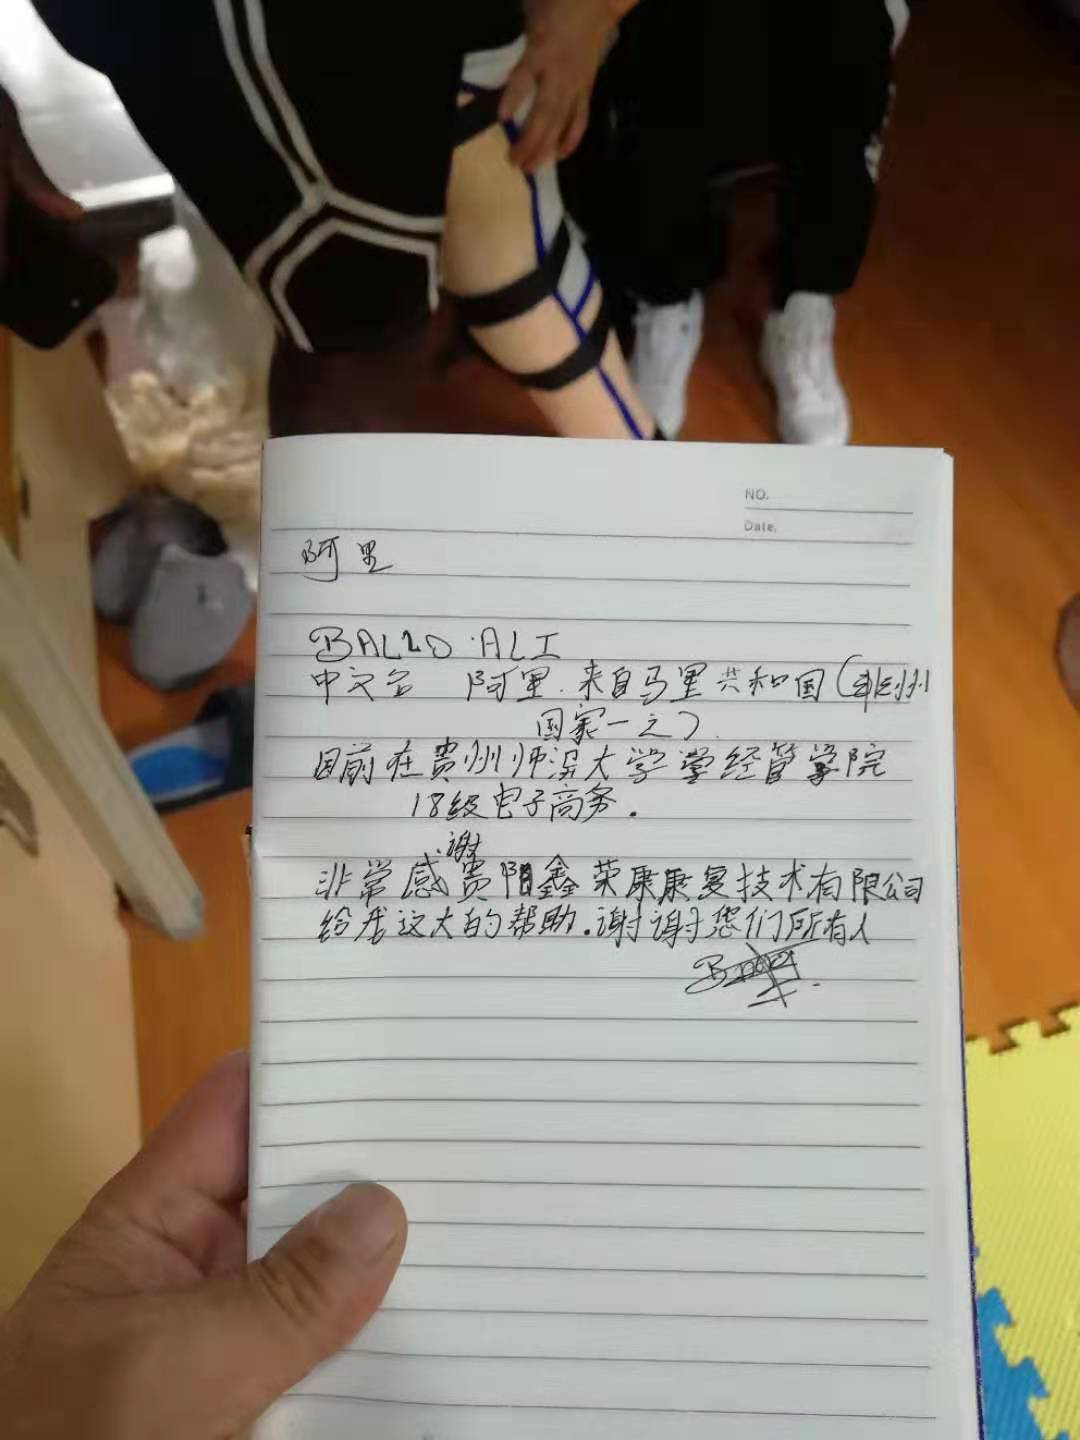 NO.
Date.
阿里
BALLO ALI
中文名 阿里.来自马里共和国(非洲
国家一之)
目前在贵州师范大学学经管学院
18级电子商务.
非常感谢贵阳鑫荣康康复技术有限公司
给我这大的帮助.谢谢您们所有人